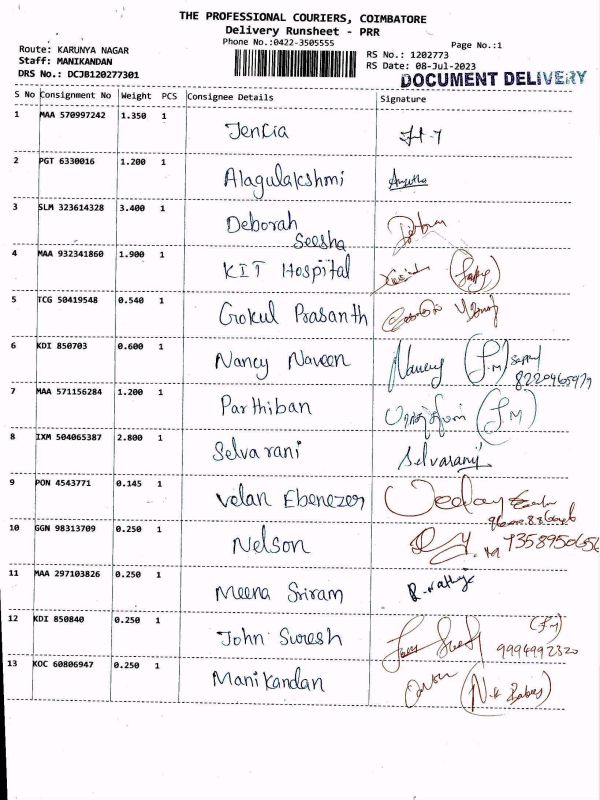 THE PROFESSIONAL COURIERS, COIMBATORE
Delivery Runsheet - PRR
Phone No.:0422-3505555
Page No.:1
Route: KARUNYA NAGAR
RS No.: 1202773
Staff: MANIKANDAN
RS Date: 08-Jul-2023
DRS No.: DCJB120277301
DOCUMENT DELIVERY
S No Consignment No Weight PCS Consignee Details Signature
1 MAA 570997242 1.350 1 Jencia
2 PGT 6330016 1.200 1 Alagulakshmi
3 SLM 323614328 3.400 1 Deborah
Seesha
4 MAA 932341860 1.900 1 KIT Hospital
5 TCG 50419548 0.540 1 Gokul Prasanth
6 KDI 850703 0.600 1 Nancy Naveen Nancy (J.M)
7 MAA 571156284 1.200 1 Parthiban (J M)
8 IXM 504065387 2.800 1 Selva rani Selvarani
9 PON 4543771 0.145 1 Velan Ebenezer
10 GGN 98313709 0.250 1 Nelson
11 MAA 297103826 0.250 1 Meena Sriram
12 KDI 850840 0.250 1 John Suresh 9994992320
13 KOC 60806947 0.250 1 Manikandan